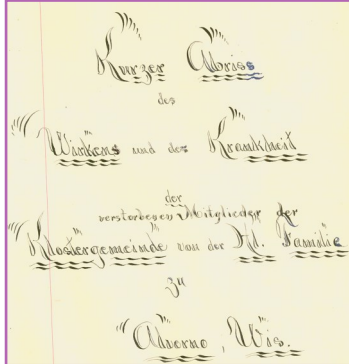 Kurzer Abriss
des
Wirkens und des Krankheit
der
verstorbenen Mitglieder der
Klostergemeinde von der Hl. Familie
zu
Alverno, Wis.